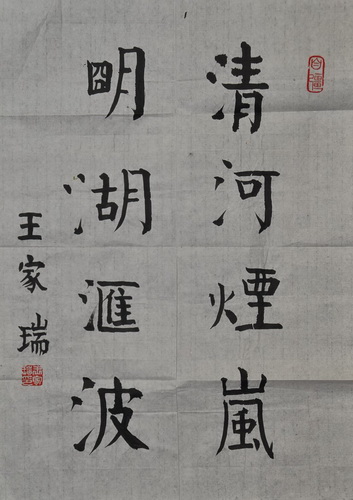 清河煙嵐
明湖滙波
王家瑞